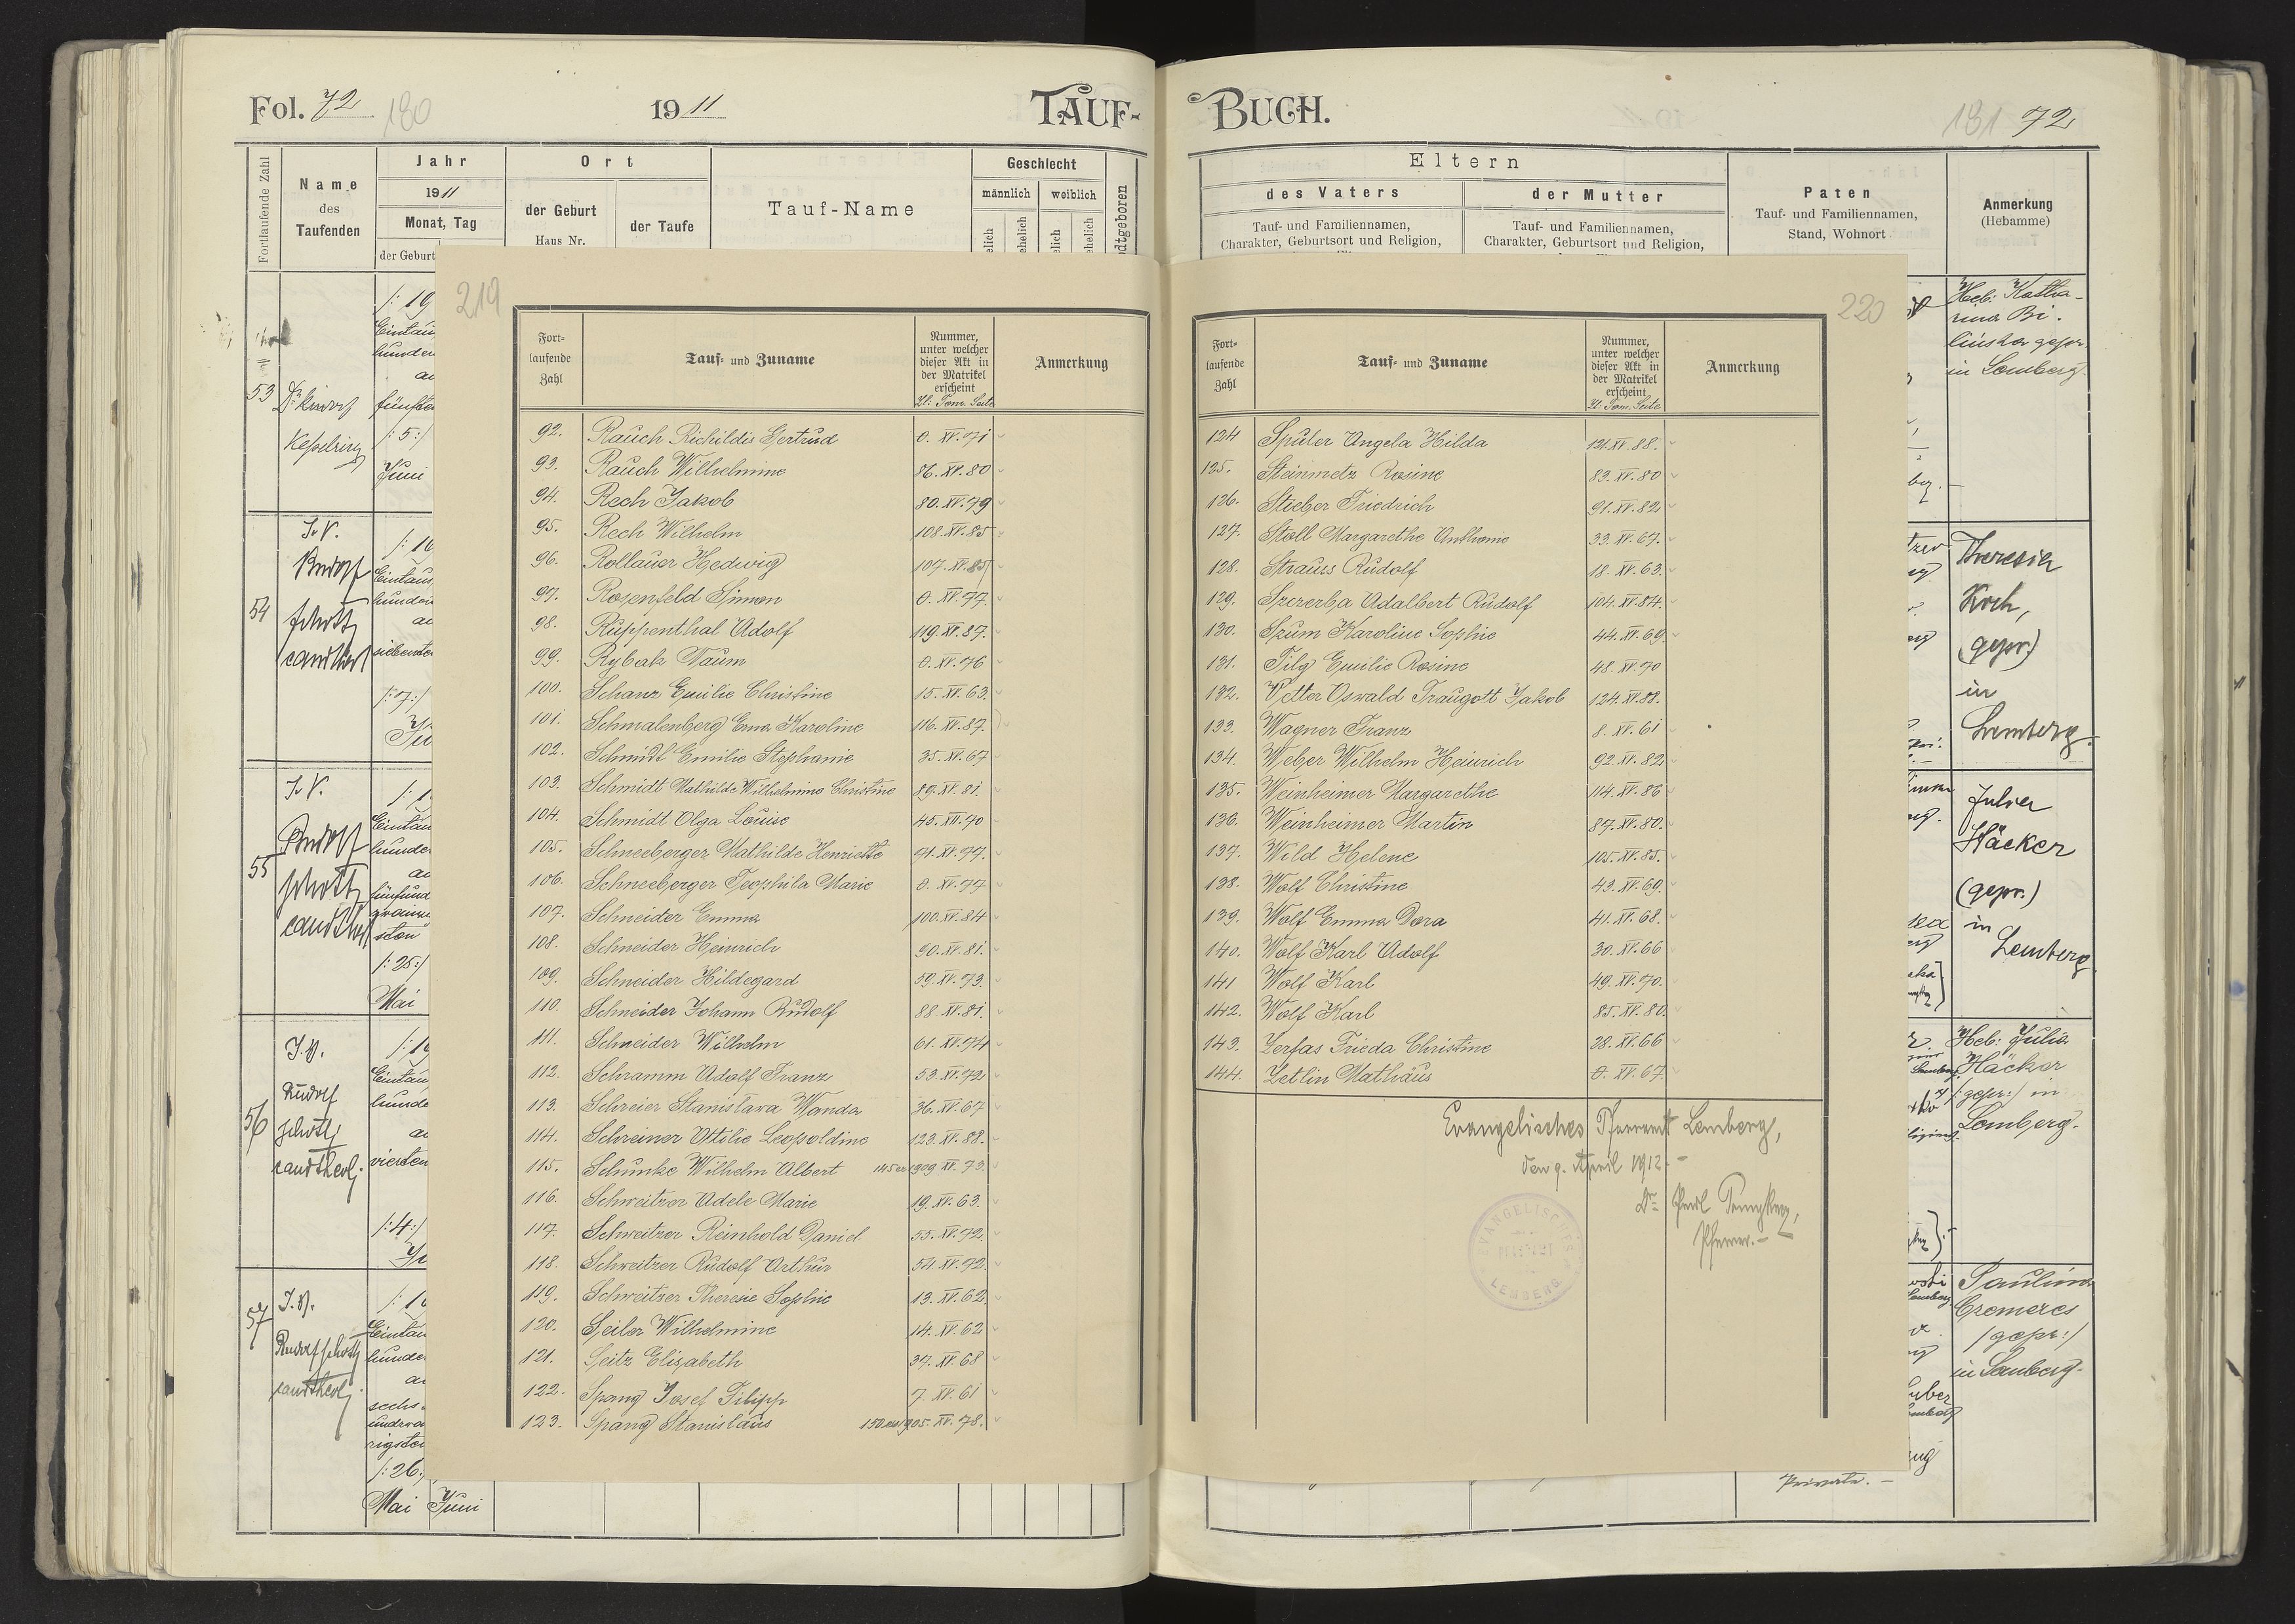 Fol. 72 180
1911
TAUF-
Fortlaufende Zahl
Name
des
Taufenden
Jahr
1911
Monat, Tag
der Geburt
Ort
der Geburt
Haus Nr.
der Taufe
Tauf-Name
Geschlecht
männlich weiblich
53 Dr.
Kesselring
fünften
/: 5 :/
Juni
54 I.V.
Rudolf
Schott
/: 7 :/
55 I.V.
Rudolf
Schott
/: 25 :/
Mai
56 I.V.
Rudolf
Schott
cand theol.
vierten
/: 4 :/
57 I.V.
Rudolf Schott
cand theol.
sechs-
/: 26
Mai Juni
219
Fort-
laufende
Zahl
Tauf- und Zuname
Nummer,
unter welcher
dieser Akt in
der Matrikel
erscheint
Zl: Tom. Seite
Anmerkung
92. Rauch Richildis Gertrud 0. XV. 71
93. Rauch Wilhelmine 86. XV. 80
94. Rech Jakob 80. XV. 79
95. Rech Wilhelm 108. XV. 85
96. Rollauer Hedwig 107. XV. 85
97. Rosenfeld Simon 0. XV. 77.
98. Ruppenthal Adolf 119. XV. 87.
99. Rybak Naum 0. XV. 76
100. Schanz Emilie Christine 15. XV. 63.
101. Schmalenberg Ema Karoline 116. XV. 87.
102. Schmidt Emilie Stephanie 35. XV. 67
103. Schmidt Mathilde Wilhelmine Christine 89. XV. 81.
104. Schmidt Olga Louise 45. XV. 70
105. Schneeberger Mathilde Henriette 71. XV. 77.
106. Schneeberger Teophila Marie 0. XV. 77
107. Schneider Emma 100. XV. 84
108. Schneider Heinrich 90. XV. 81.
109. Schneider Hildegard 59. XV. 73.
110. Schneider Johann Rudolf 88. XV. 81.
111. Schneider Wilhelm 61. XV. 74
112. Schramm Adolf Franz 53. XV. 72
113. Schreier Stanislawa Wanda 36. XV. 67
114. Schreiner Ottilie Leopoldine 123. XV. 88.
115. Schunke Wilhelm Albert 1909 XV. 73.
116. Schweitzer Adele Marie 19. XV. 63.
117. Schweitzer Reinhold Daniel 55. XV. 72.
118. Schweitzer Rudolf Arthur 54. XV. 72.
119. Schweitzer Therese Sophie 13. XV. 62.
120. Seiler Wilhelmine 14. XV. 62
121. Seitz Elisabeth 37. XV. 68
122. Spang Josef Filipp 7. XV. 61
123. Spang Stanislaus 905. XV. 78.
BUCH.
181 72
Eltern
des Vaters
Tauf- und Familiennamen,
Charakter, Geburtsort und Religion,
der Mutter
Tauf- und Familiennamen,
Charakter, Geburtsort und Religion,
Paten
Tauf- und Familiennamen,
Stand, Wohnort
Anmerkung
(Hebamme)
220
Fort-
laufende
Zahl
Tauf- und Zuname
Nummer,
unter welcher
dieser Akt in
der Matrikel
erscheint
Zl. Tom. Seite
Anmerkung
124 Spuler Angela Hilda 121. XV. 88.
125. Steinmetz Rosine 83. XV. 80
126. Stieber Friedrich 91. XV. 82
127. Stoll Margarethe Anthonie 33. XV. 67.
128. Strauss Rudolf 18. XV. 63.
129. Szczerba Adalbert Rudolf 104. XV. 84.
130. Szum Karoline Sophie 44. XV. 69.
131. Tilg Emilie Rosine 48. XV. 70
132. Vetter Oswald Traugott Jakob 124. XV. 88.
133. Wagner Franz 8. XV. 61
134. Weber Wilhelm Heinrich 92. XV. 82
135. Weinheimer Margarethe 114. XV. 86
136. Weinheimer Martin 87. XV. 80.
137. Wild Helene 105. XV. 85.
138. Wolf Christine 43. XV. 69.
139. Wolf Emma Dora 41. XV. 68.
140. Wolf Karl Adolf 30. XV. 66
141 Wolf Karl 49. XV. 70.
142. Wolf Karl 85. XV. 80.
143. Zerfas Frieda Christine 28. XV. 66
144. Zetlin Mathäus 0. XV. 67.
Evangelisches Pfarramt Lemberg,
den 9. April 1912.-
Dr.
Pfarrer.-
EVANGELISCHES
PFARRAMT
LEMBERG
Heb: Katha-
rina Bi-
linska gepr.
in Lemberg.
Theresia
Koch,
(gepr.)
in
Lemberg.
Julia
Häcker
(gepr.)
in
Lemberg.
Heb: Julia
Häcker
/:gepr:/ in
Lemberg.
Paulina
Czemeres
/gepr:/
in Lemberg.
Private.-